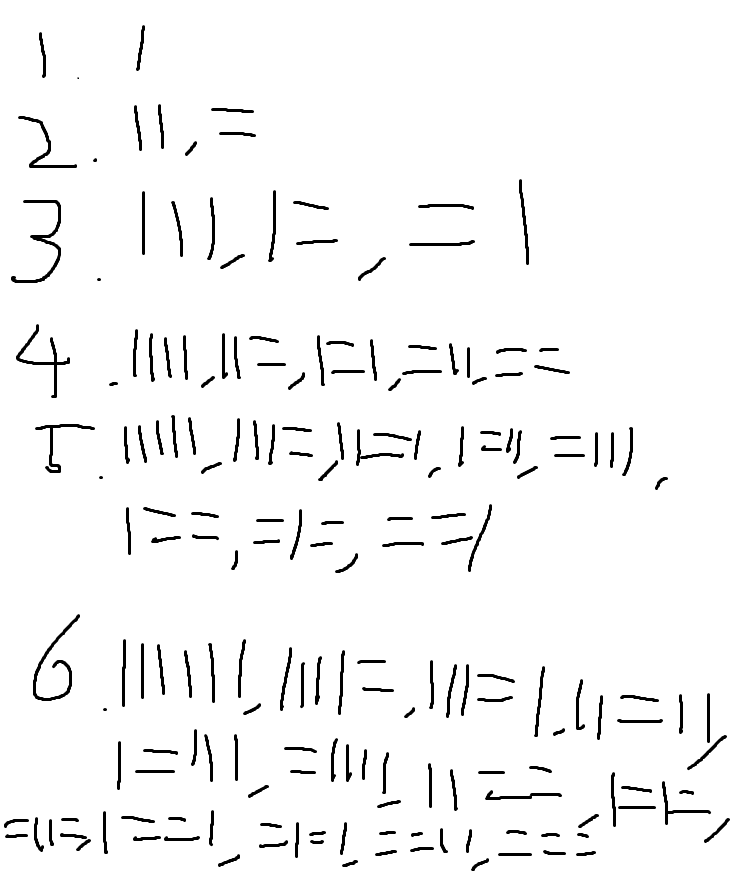 1. |
2. ||, =
3. |||, |=, =|
4. ||||, ||=, |=|, =||, ==
5. |||||, |||=, ||=|, |=||, =|||,
|==, =|=, ==|
6. ||||||, ||||=, |||=|, ||=||,
|=|||, =||||, ||==, |=|=,
=||=, |==|, =|=|, ==||, ===